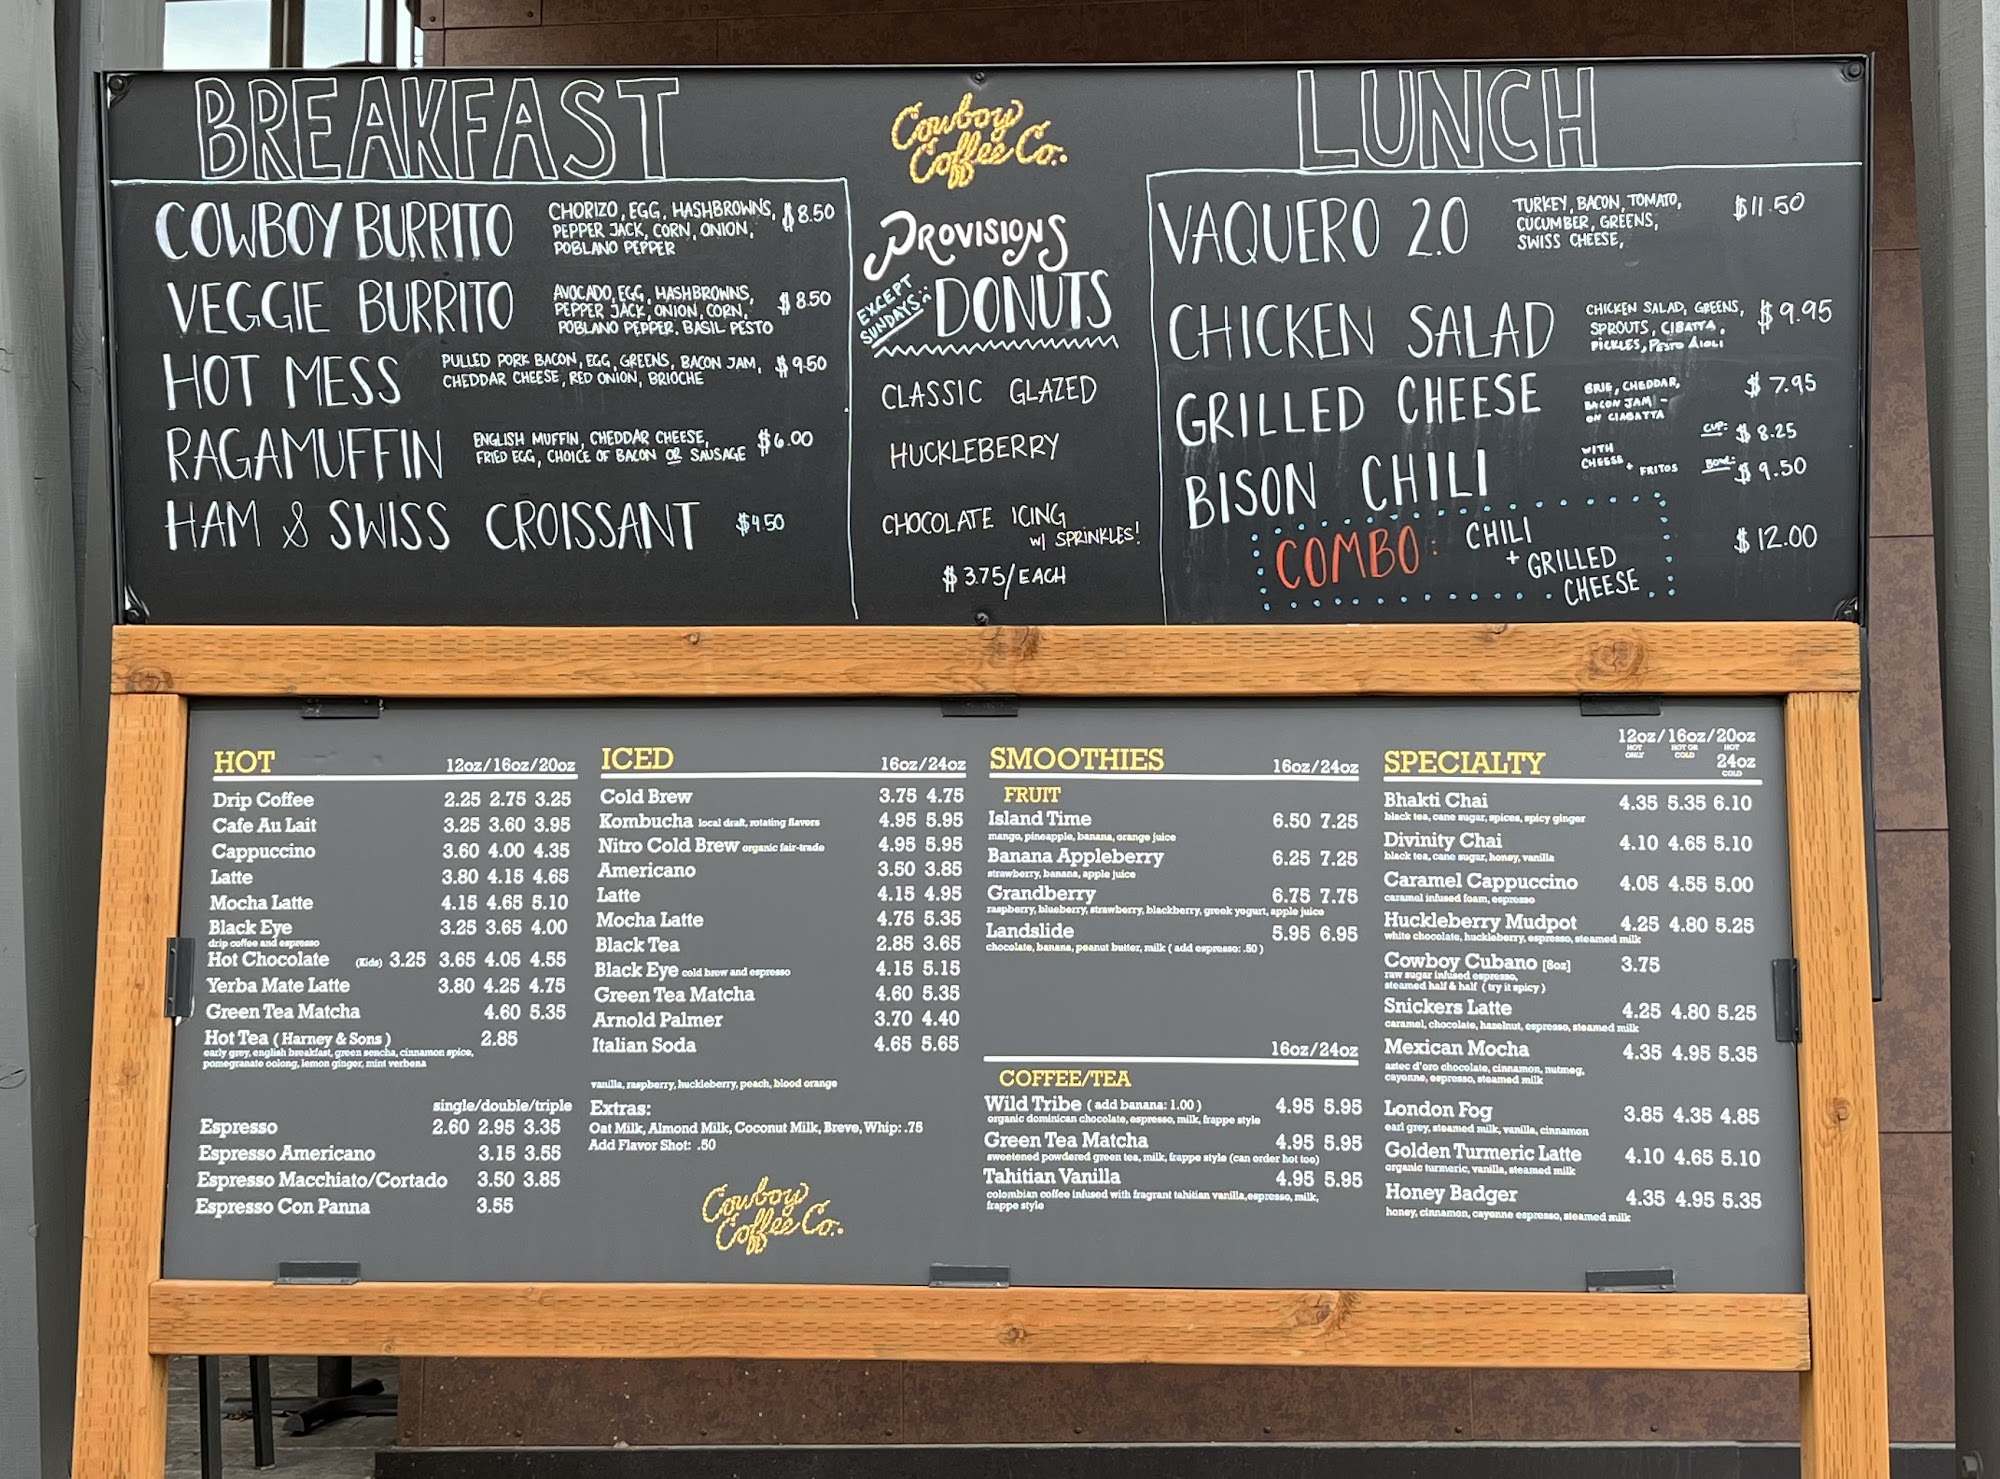 BREAKFAST
COWBOY BURRITO
CHORIZO, EGG, HASHBROWNS,
PEPPER JACK, CORN, ONION,
POBLANO PEPPER
$8.50
VEGGIE BURRITO
AVOCADO, EGG, HASHBROWNS,
PEPPER JACK, ONION, CORN,
POBLANO PEPPER. BASIL PESTO
$8.50
HOT MESS
PULLED PORK BACON, EGG, GREENS, BACON JAM,
CHEDDAR CHEESE, RED ONION, BRIOCHE
$9.50
RAGAMUFFIN
ENGLISH MUFFIN, CHEDDAR CHEESE,
FRIED EGG, CHOICE OF BACON OR SAUSAGE
$6.00
HAM & SWISS CROISSANT $4.50
Cowboy
Coffee Co.
PROVISIONS
DONUTS
EXCEPT
SUNDAYS :(
CLASSIC GLAZED
HUCKLEBERRY
CHOCOLATE ICING
W/ SPRINKLES!
$3.75/EACH
LUNCH
VAQUERO 2.0
TURKEY, BACON, TOMATO,
CUCUMBER, GREENS,
SWISS CHEESE,
$11.50
CHICKEN SALAD
CHICKEN SALAD, GREENS,
SPROUTS, CIBATTA,
PICKLES, PESTO AIOLI
$9.95
GRILLED CHEESE
BRIE, CHEDDAR,
BACON JAM -
ON CIABATTA
$7.95
BISON CHILI
WITH
CHEESE + FRITOS
CUP: $8.25
BOWL: $9.50
COMBO: CHILI
+ GRILLED
CHEESE
$12.00
HOT 12oz/16oz/20oz
Drip Coffee 2.25 2.75 3.25
Cafe Au Lait 3.25 3.60 3.95
Cappuccino 3.60 4.00 4.35
Latte 3.80 4.15 4.65
Mocha Latte 4.15 4.65 5.10
Black Eye 3.25 3.65 4.00
drip coffee and espresso
Hot Chocolate (Kids) 3.25 3.65 4.05 4.55
Yerba Mate Latte 3.80 4.25 4.75
Green Tea Matcha 4.60 5.35
Hot Tea ( Harney & Sons ) 2.85
early grey, english breakfast, green sencha, cinnamon spice,
pomegranate oolong, lemon ginger, mint verbena
single/double/triple
Espresso 2.60 2.95 3.35
Espresso Americano 3.15 3.55
Espresso Macchiato/Cortado 3.50 3.85
Espresso Con Panna 3.55
ICED 16oz/24oz
Cold Brew 3.75 4.75
Kombucha local draft, rotating flavors 4.95 5.95
Nitro Cold Brew organic fair-trade 4.95 5.95
Americano 3.50 3.85
Latte 4.15 4.95
Mocha Latte 4.75 5.35
Black Tea 2.85 3.65
Black Eye cold brew and espresso 4.15 5.15
Green Tea Matcha 4.60 5.35
Arnold Palmer 3.70 4.40
Italian Soda 4.65 5.65
vanilla, raspberry, huckleberry, peach, blood orange
Extras:
Oat Milk, Almond Milk, Coconut Milk, Breve, Whip: .75
Add Flavor Shot: .50
Cowboy
Coffee Co.
SMOOTHIES 16oz/24oz
FRUIT
Island Time 6.50 7.25
mango, pineapple, banana, orange juice
Banana Appleberry 6.25 7.25
strawberry, banana, apple juice
Grandberry 6.75 7.75
raspberry, blueberry, strawberry, blackberry, greek yogurt, apple juice
Landslide 5.95 6.95
chocolate, banana, peanut butter, milk ( add espresso: .50 )
16oz/24oz
COFFEE/TEA
Wild Tribe ( add banana: 1.00 ) 4.95 5.95
organic dominican chocolate, espresso, milk, frappe style
Green Tea Matcha 4.95 5.95
sweetened powdered green tea, milk, frappe style (can order hot too)
Tahitian Vanilla 4.95 5.95
colombian coffee infused with fragrant tahitian vanilla, espresso, milk,
frappe style
SPECIALTY 12oz/16oz/20oz
HOT ONLY HOT OR COLD HOT
24oz
COLD
Bhakti Chai 4.35 5.35 6.10
black tea, cane sugar, spices, spicy ginger
Divinity Chai 4.10 4.65 5.10
black tea, cane sugar, honey, vanilla
Caramel Cappuccino 4.05 4.55 5.00
caramel infused foam, espresso
Huckleberry Mudpot 4.25 4.80 5.25
white chocolate, huckleberry, espresso, steamed milk
Cowboy Cubano [8oz] 3.75
raw sugar infused espresso,
steamed half & half ( try it spicy )
Snickers Latte 4.25 4.80 5.25
caramel, chocolate, hazelnut, espresso, steamed milk
Mexican Mocha 4.35 4.95 5.35
aztec d'oro chocolate, cinnamon, nutmeg,
cayenne, espresso, steamed milk
London Fog 3.85 4.35 4.85
earl grey, steamed milk, vanilla, cinnamon
Golden Turmeric Latte 4.10 4.65 5.10
organic turmeric, vanilla, steamed milk
Honey Badger 4.35 4.95 5.35
honey, cinnamon, cayenne espresso, steamed milk